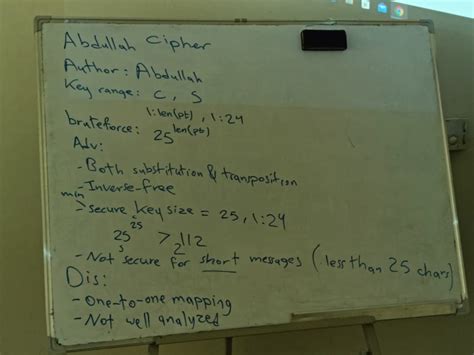 Abdullah Cipher
Author: Abdullah
Key range: C, S
1:len(pt), 1:24
bruteforce: 25^len(pt)
Adv:
- Both substitution & transposition
- Inverse-free
min
-> secure key size = 25, 1:24
25^25 > 2^112
s
- Not secure for short messages (less than 25 chars)
Dis:
- One-to-one mapping
- Not well analyzed